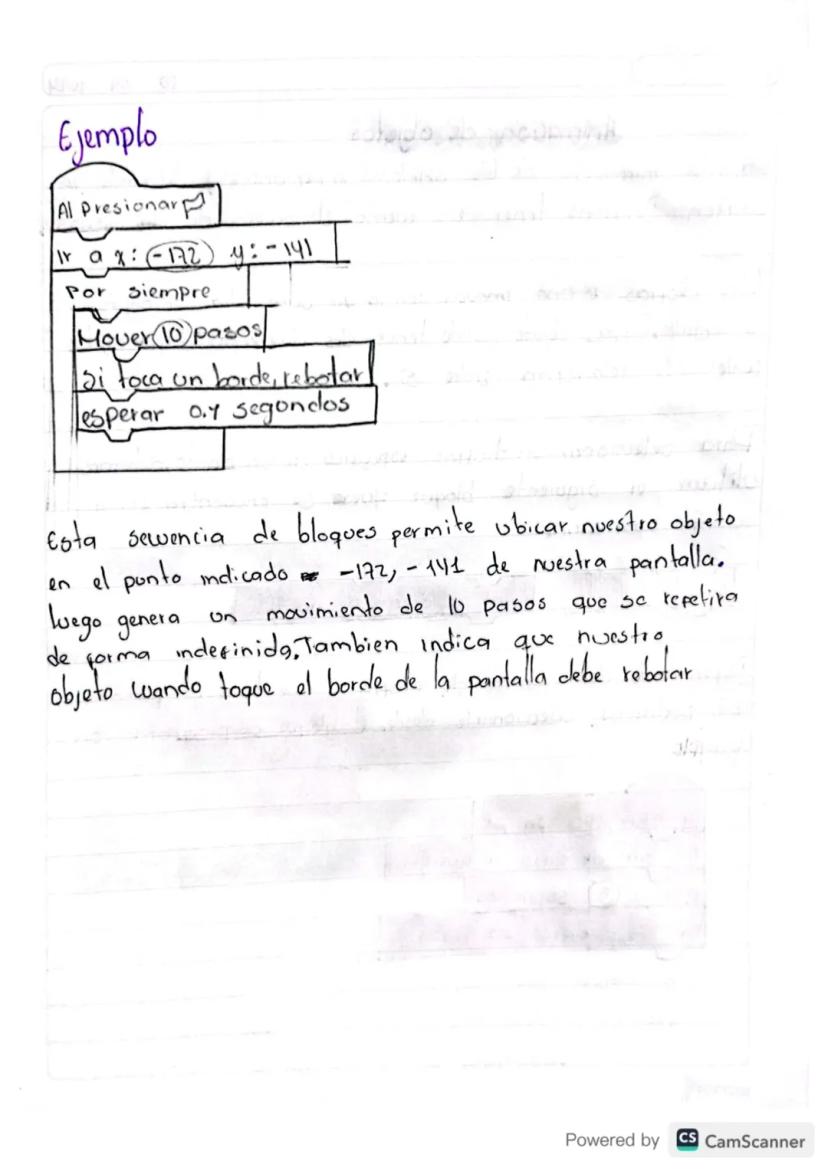 Ejemplo
Al Presionar
Ir a x: -172 y: -141
Por siempre
Mover 10 pasos
Si toca un borde, rebotar
esperar 0.4 segondos
Esta secuencia de bloques permite ubicar nuestro objeto
en el punto indicado -172, -141 de nuestra pantalla.
luego genera un movimiento de 10 pasos que se repetira
de forma indefinida. Tambien indica que nuestro
objeto cuando toque el borde de la pantalla debe rebotar
Powered by CS CamScanner